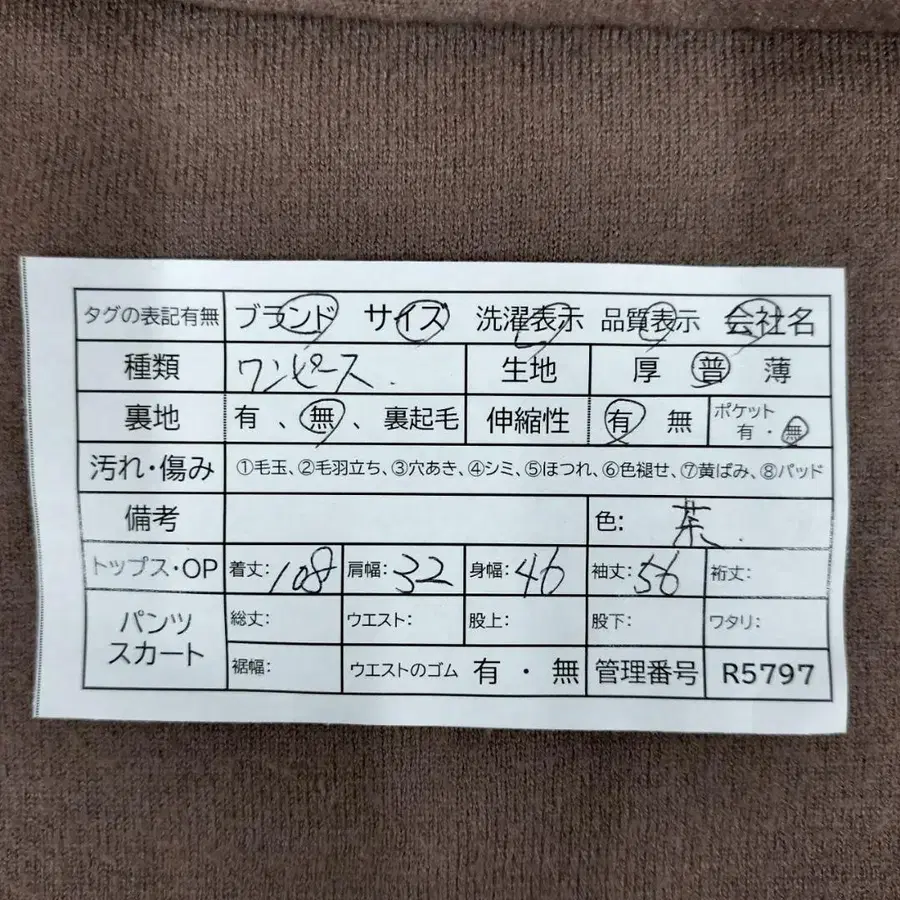 タグの表記有無 ブランド サイズ 洗濯表示 品質表示 会社名
種類 ワンピース. 生地 厚 普 薄
裏地 有、無、裏起毛 伸縮性 有 無 ポケット 有・無
汚れ・傷み ①毛玉、②毛羽立ち、③穴あき、④シミ、⑤ほつれ、⑥色褪せ、⑦黄ばみ、⑧パッド
備考 色: 茶.
トップス・OP 着丈:108 肩幅:32 身幅:46 袖丈:56 裄丈:
パンツ スカート 総丈: ウエスト: 股上: 股下: ワタリ:
裾幅: ウエストのゴム 有・無 管理番号 R5797